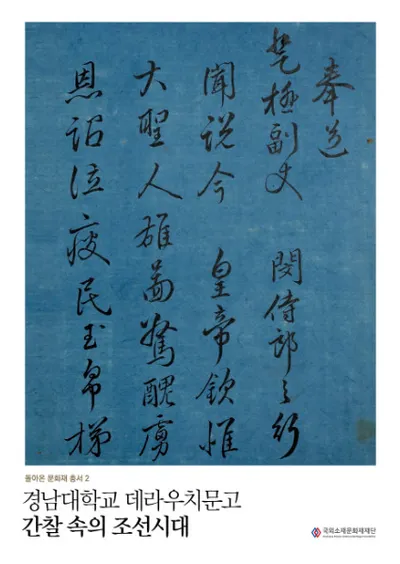 奉送
登極副使 閔侍郎之行
聞說今 皇帝欽惟
大聖人雄啚驚醜虜
恩詔泣疲民玉帛梯
돌아온 문화재 총서 2
경남대학교 데라우치문고
간찰 속의 조선시대
국외소재문화재재단